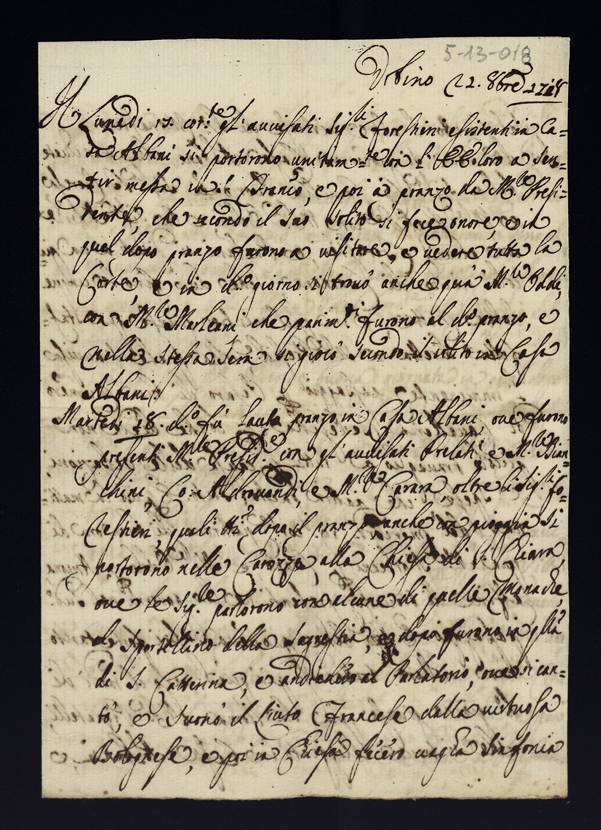 5-13-018
Urbino 22. 8bre 1718
Lunedì 17. corr.te gl'avvisati Sig.ri Forestieri esistenti in Ca-
sa Albani si portorono unitam.te con li loro a sen-
tir messa in S. Franc.o, e poi a pranzo da M.r Presi-
dente, che secondo il suo solito si fece onore, e in
quel dopo pranzo furono a visitare, e vedere tutta la
Corte, e in d.o giorno si trovò anche quà M.r Oddi,
con M.r Marleani che parim.ti furono al d.o pranzo, e
nella stessa sera si giocò secondo il solito in Casa
Albani.
Martedì 18. d.o fù lauto pranzo in Casa Albani, ove furono
presenti M.r Presid.e con gl'avvisati Prelati e M.r Bian-
chini, Co: Aldrovandi, e M.r Carara, oltre li Sig.ri fo-
restieri, quali tt.i dopo il pranzo anche con pioggia si
portorono nelle Carozze, alla Chiesa di S. Chiara,
ove le Sig.re parlorono con alcune di quelle Monache,
al sportellino della Sagrestia, e dopo furono a q.lla
di S. Catterina, e andiedero al Parlatorio, ove si can-
tò, e suonò il Liuto Francese dalla virtuosa
Bolognese, e poi in Chiesa fecero una sinfonia